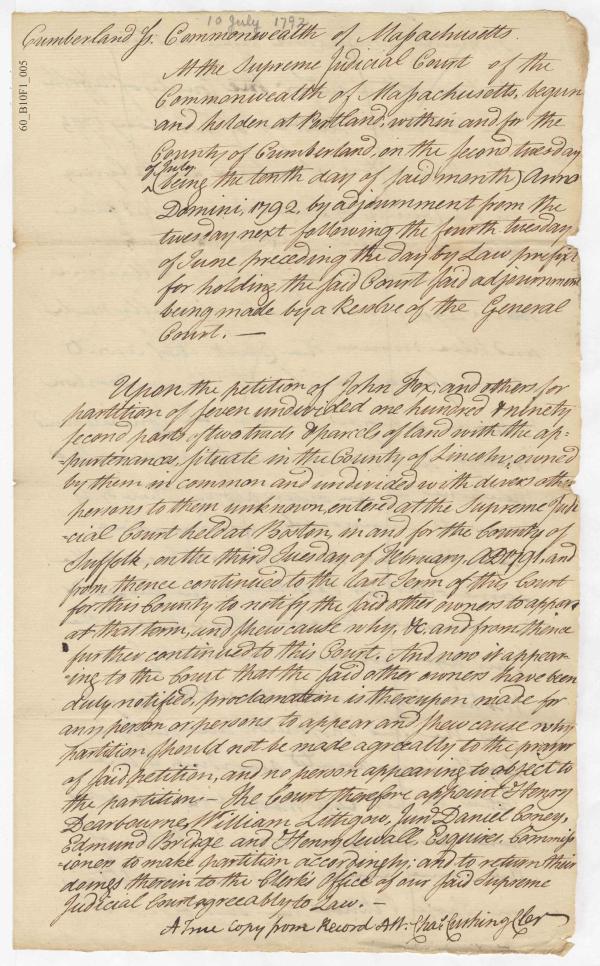 10 July 1792
60_B10F1_005
Cumberland ss: Commonwealth of Massachusetts.
At the Supreme Judicial Court of the
Commonwealth of Massachusetts, begun
and holden at Portland, within and for the
County of Cumberland, on the second tuesday
of July
(being the tenth day of said month) Anno
Domini, 1792, by adjournment from the
tuesday next following the fourth tuesday
of June preceding the day by Law prefixt
for holding the said Court said adjournment
being made by a Resolve of the General
Court. —
Upon the petition of John Fox, and others for
partition of seven undivided one hundred & ninety
second parts of two tracts & parcels of land with the ap-
-purtenances, situate in the County of Lincoln, owned
by them in common and undivided with divers other
persons to them unknown, entered at the Supreme Judi
-cial Court held at Boston, in and for the County of
Suffolk, on the third Tuesday of February, AD 1791, and
from thence continued to the last Term of this Court
for this County to notify the said other owners to appear
at that term, and shew cause why, &c, and from thence
further continued to this Court. And now it appear-
-ing to the Court that the said other owners have been
duly notified, proclamation is thereupon made for
any person or persons to appear and shew cause why
partition should not be made agreeably to the prayer
of said petition, and no person appearing to object to
the partition. — The Court therefore appoint Henry
Dearbourne, William Lithgow, Junr Daniel Coney,
Edmund Bridge and Henry Sewall, Esquires, Commiss
-ioners to make partition accordingly; and to return their
doings therein to the Clerk's Office of our said Supreme
Judicial Court agreeably to Law. —
A True Copy from Record Att: Chas Cushing Cler